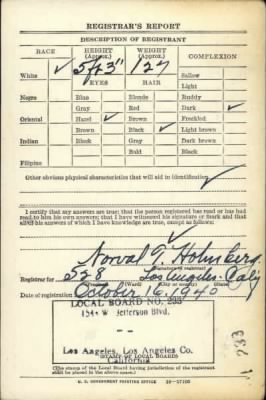 REGISTRAR'S REPORT
DESCRIPTION OF REGISTRANT
RACE HEIGHT (Approx.) WEIGHT (Approx.) COMPLEXION
White ✓ 5 ft 3" 127 Sallow
EYES HAIR Light
Negro Blue Blonde Ruddy
Gray Red Dark ✓
Oriental Hazel ✓ Brown Freckled
Brown Black ✓ Light brown
Indian Black Gray Dark brown
Bald Black
Filipino
Other obvious physical characteristics that will aid in identification
I certify that my answers are true; that the person registered has read or has had
read to him his own answers; that I have witnessed his signature or mark and that
all of his answers of which I have knowledge are true, except as follows:
Norval T.
(Signature of registrar)
Registrar for 528 Los Angeles Calif
(Precinct) (Ward) (City or county) (State)
Date of registration October 16, 1940
LOCAL BOARD NO. 233
W Jefferson Blvd.
Los Angeles, Los Angeles Co.
California
(STAMP OF LOCAL BOARD)
(The stamp of the Local Board having jurisdiction of the registrant
shall be placed in the above space.)
U. S. GOVERNMENT PRINTING OFFICE 16—17105
233